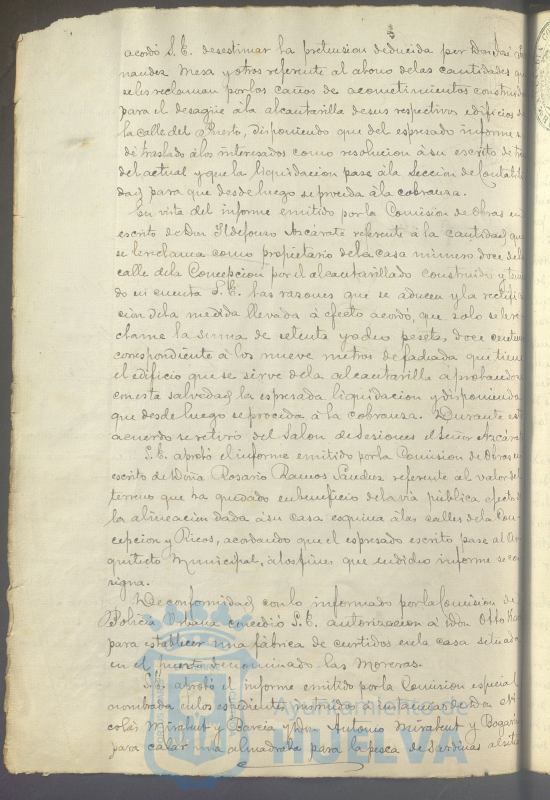 acordó S.E. desestimar la pretension deducida por Don José
nandez Mesa y otros referente al abono de las cantidades que
se les reclaman por los caños de acometimientos construidos
para el desagüe á la alcantarilla de sus respectivos edificios de
la calle del Puerto, disponiendo que del espresado informe se
dé traslado á los interesados como resolucion á su escrito de
del actual y que la liquidacion pase á la Seccion de Contabili
dad para que desde luego se proceda á la cobranza.
En vista del informe emitido por la Comision de Obras en
escrito de Don Ildefonso Azcárate referente á la cantidad que
se le reclama como propietario de la casa número doce de la
calle de la Concepcion por el alcantarillado construido y tenien
do en cuenta S.E. las razones que se aducen y la rectifi
cion de la medida llevada á efecto acordó, que solo se le re
clame la suma de setenta y ocho pesetas, doce centimos
correspondiente á los nueve metros de fachada que tiene
el edificio que se sirve de la alcantarilla aprobandose
con esta salvedad la espresada liquidacion y disponiendo
que desde luego se proceda á la cobranza. Durante este
acuerdo se retiró del Salon de Sesiones el Señor Azcárate
S.E. aprobó el informe emitido por la Comision de Obras en
escrito de Doña Rosario Ramos Sanchez referente al valor del
terreno que ha quedado en beneficio de la via pública efecto de
la alineacion dada á su casa esquina á las calles de la Con
cepcion y Ricos, acordando que el espresado escrito pase al Ar
quitecto Municipal, á los fines que en dicho informe se con
signa.
De conformidad con lo informado por la Comision de
Policia Urbana concedió S.E. autorizacion á Don Otto
para establecer una fábrica de curtidos en la casa situada
en el punto denominado las Moreras.
S.E. aprobó el informe emitido por la Comision especial
nombrada en los espedientes instruidos á instancias de Don Ni
colás Mirabent y Garcia y Don Antonio Mirabent y Bogarin
para calar una almadraba para la pesca de sardinas al sitio
Ayuntamiento
HUELVA